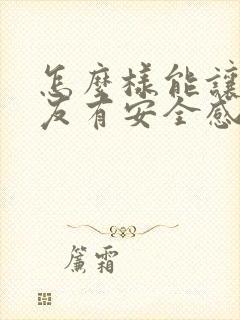 怎麼樣能讓
友有安全感
簾霜